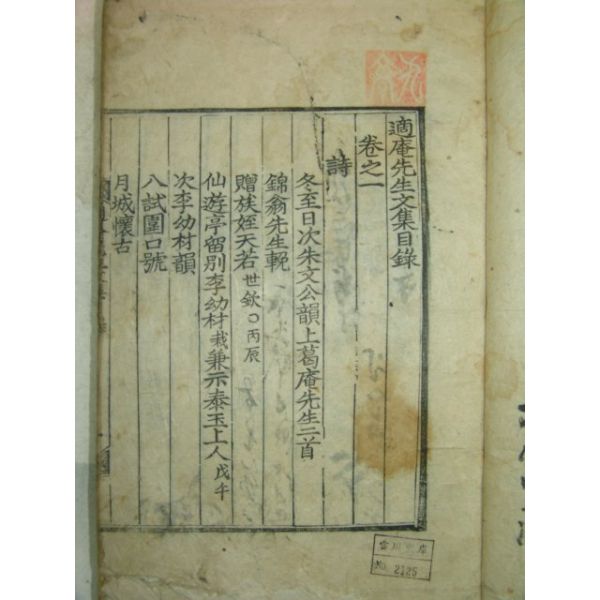 適庵先生文集目錄
卷之一
詩
冬至日次朱文公韻上葛庵先生二首
錦翁先生輓
贈族姪天若世欽○丙辰
仙遊亭留別李幼材栽兼示泰玉上人戊午
次李幼材韻
入試圍口號
月城懷古
2125